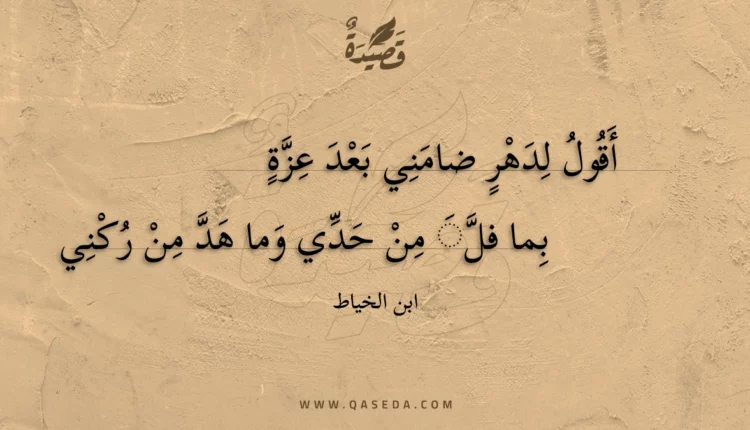 قَصِيدَةٌ
أَقُولُ لِدَهْرٍ ضامَنِي بَعْدَ عِزَّةٍ
بِما فلَّ◌َ مِنْ حَدِّي وَما هَدَّ مِنْ رُكْنِي
ابن الخياط
WWW.QASEDA.COM